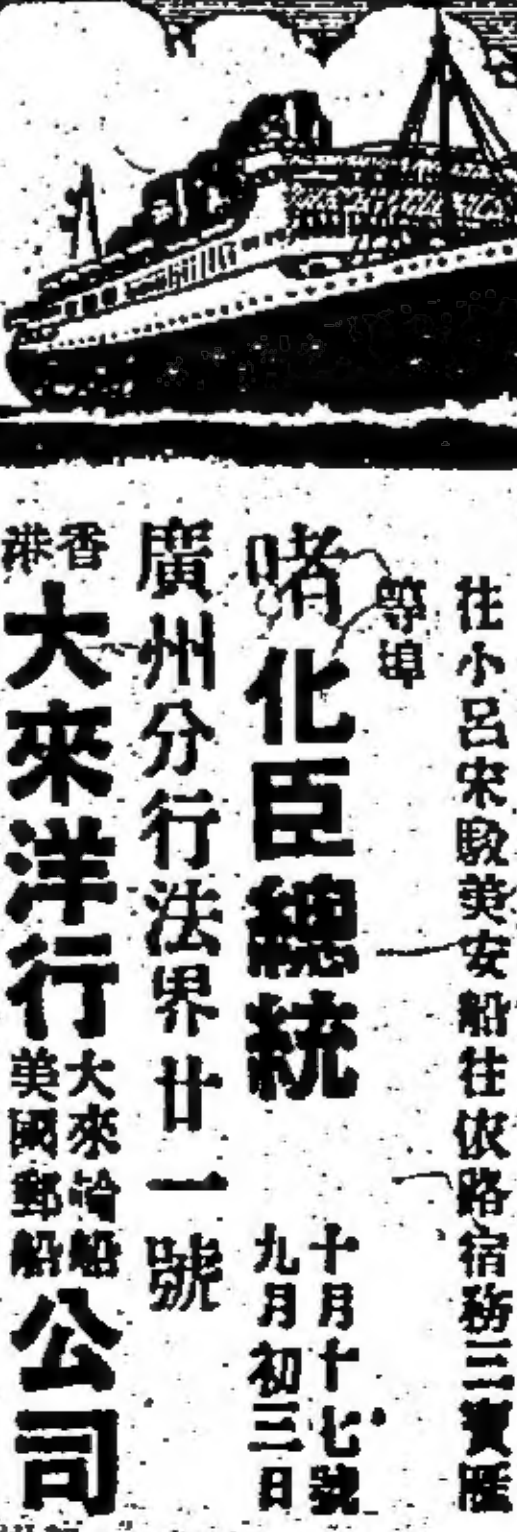 往小呂宋駁美安船往依路宿務三寶雁
等埠
啫化臣總統
十月十七號
九月初三日
廣州分行法界廿一號
香港
大來洋行
大來輪船
美國郵船
公司